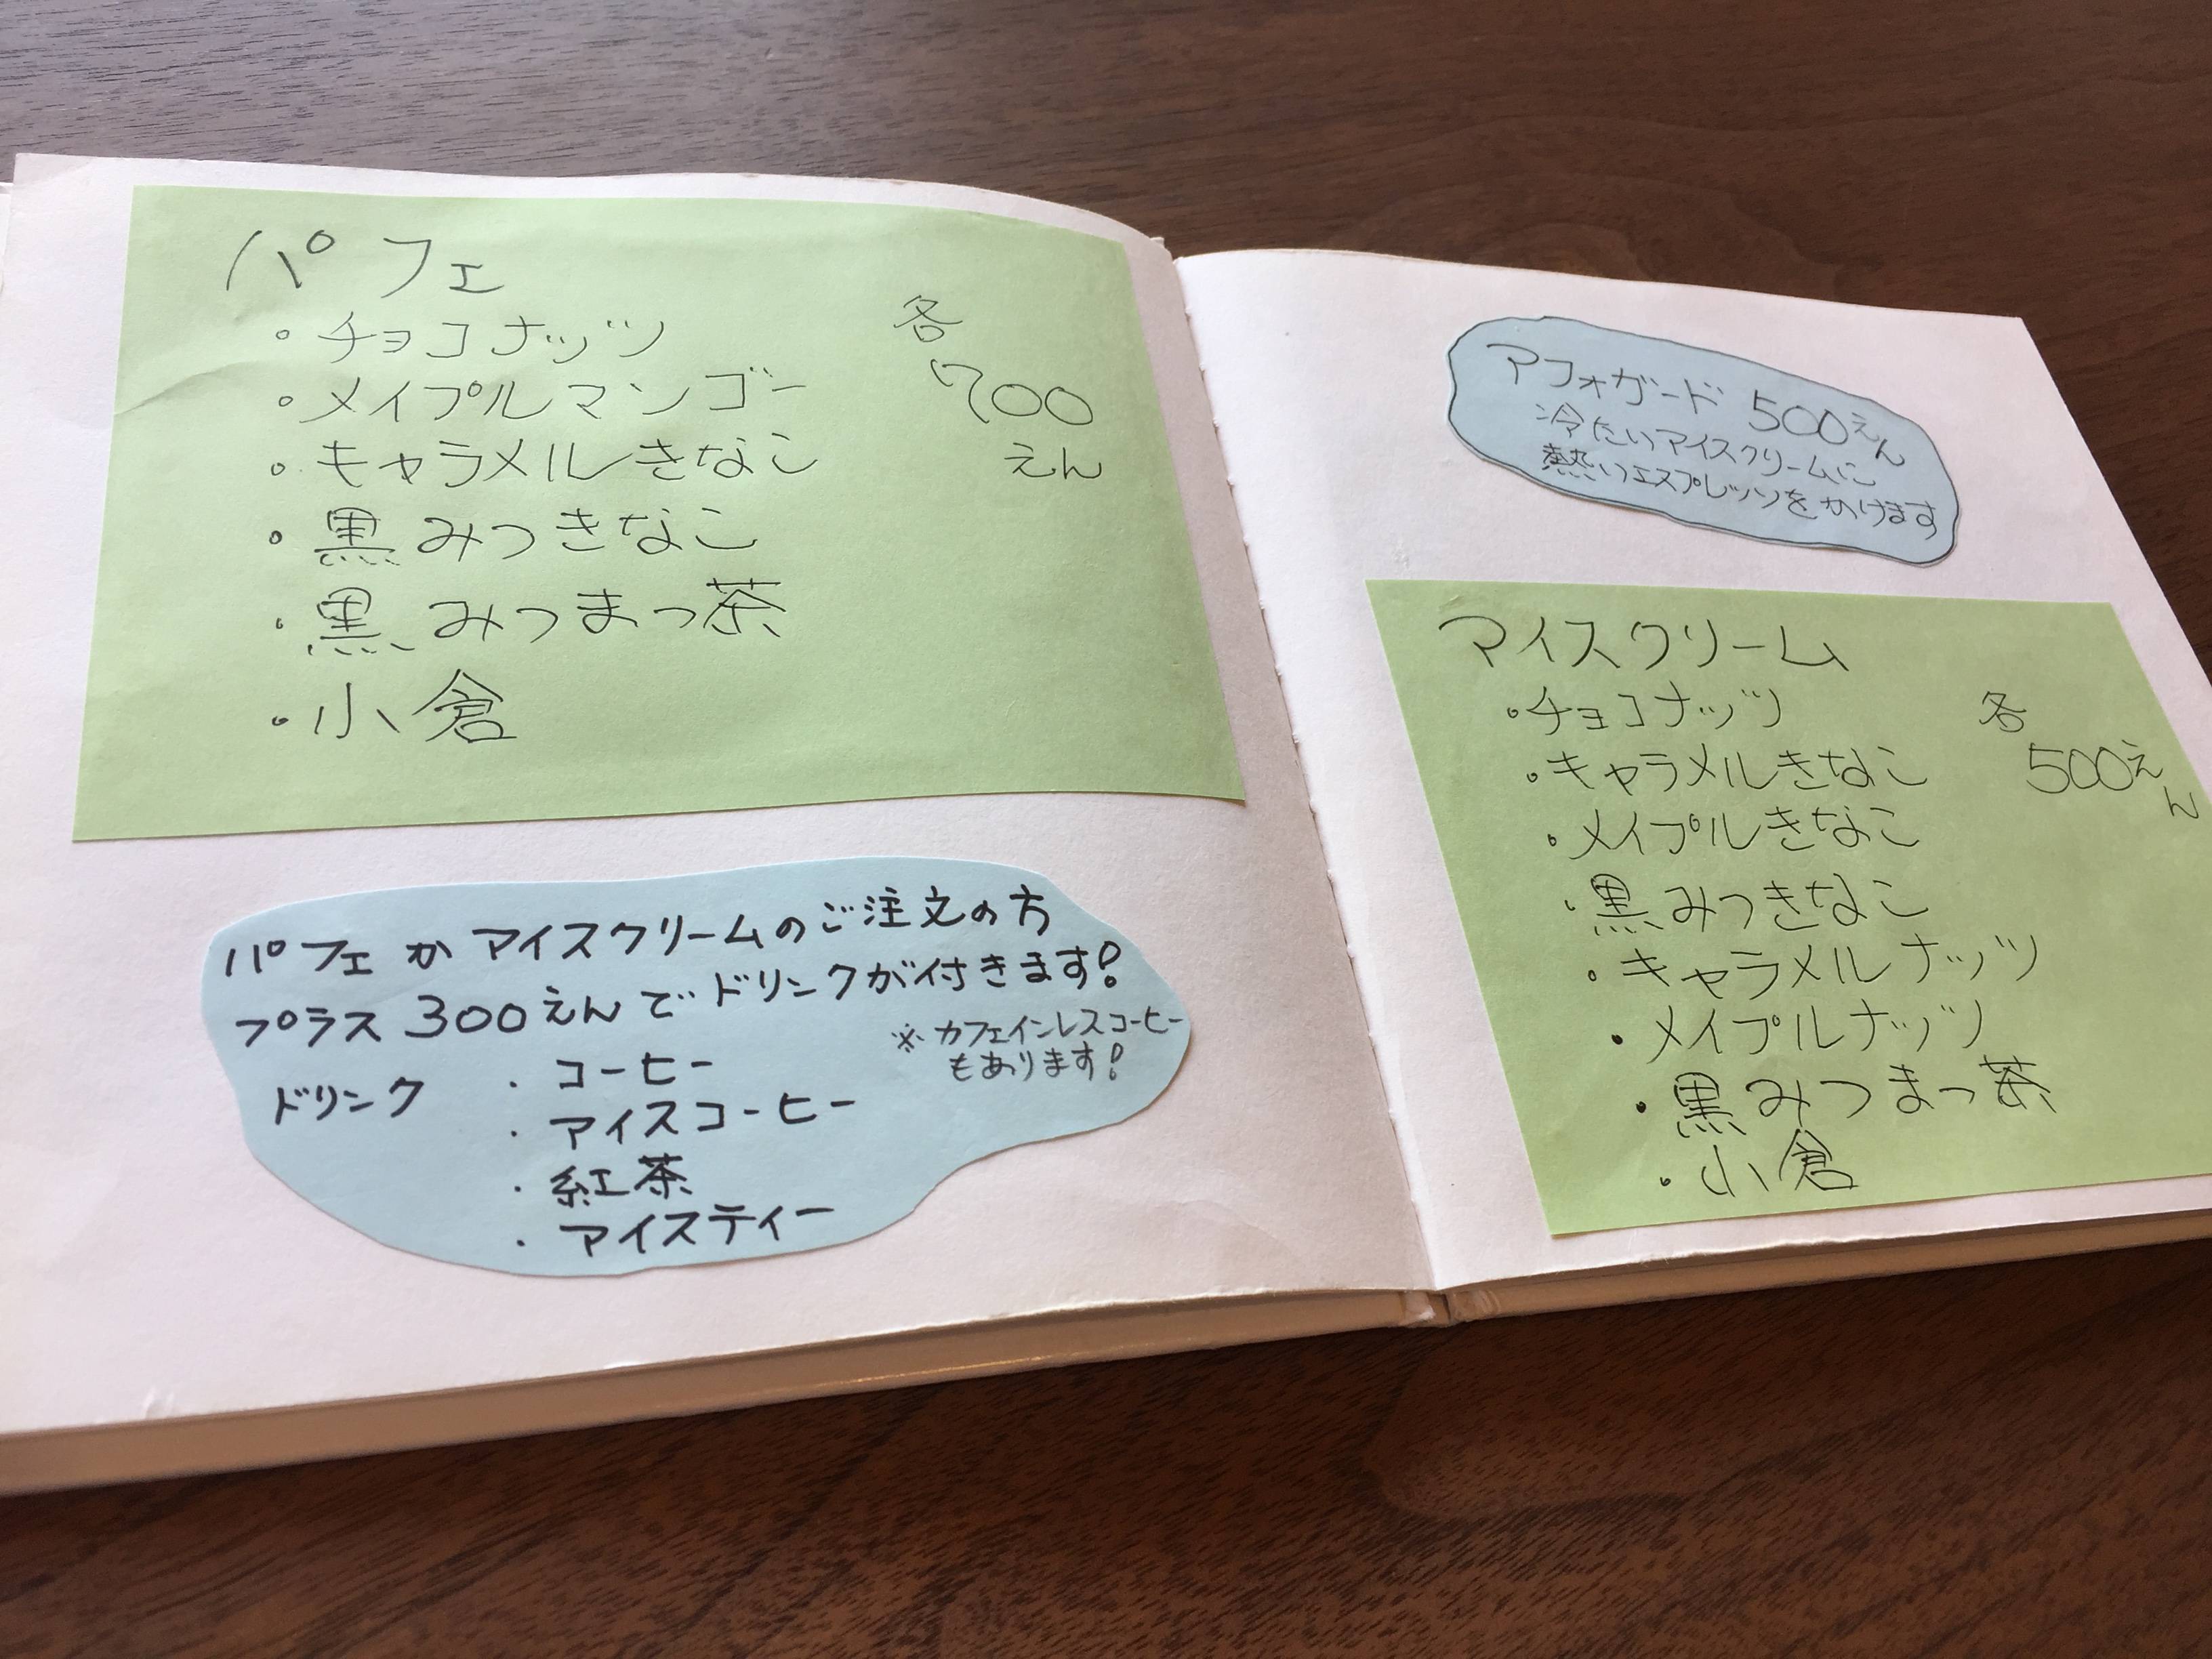 パフェ
・チョコナッツ
・メイプルマンゴー
・キャラメルきなこ
・黒みつきなこ
・黒みつまっ茶
・小倉
各
700
えん
パフェかアイスクリームのご注文の方
プラス300えんでドリンクが付きます!
※カフェインレスコーヒー
もあります!
ドリンク ・コーヒー
・アイスコーヒー
・紅茶
・アイスティー
アフォガード 500えん
冷たいアイスクリームに
熱いエスプレッソをかけます
アイスクリーム
・チョコナッツ
・キャラメルきなこ
・メイプルきなこ
・黒みつきなこ
・キャラメルナッツ
・メイプルナッツ
・黒みつまっ茶
・小倉
各
500えん